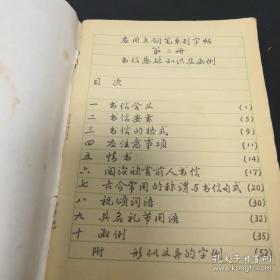 应用文钢笔系列字帖
第二册
书信基础知识及函例
目 次
一 书信含义 (1)
二 书信要素 (5)
三 书信的格式 (9)
四 应注意事项 (11)
五 情书 (14)
六 阅读欣赏前人书信 (17)
七 古今常用的称谓与书信句式 (20)
八 祝颂词语 (30)
九 具名礼节用语 (32)
十 函例 (35)
附 形似义异的字例 (52)
孔夫子旧书网